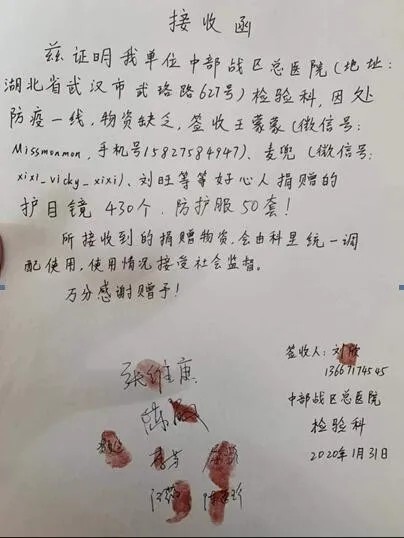 接收函
兹证明我单位中部战区总医院(地址:
湖北省武汉市武珞路627号)检验科,因处
防疫一线,物资缺乏,签收王蒙蒙(微信号:
Missmonmon,手机号15827584947)、麦兜(微信号:
xixi_vicky_xixi)、刘旺等等好心人捐赠的
护目镜430个,防护服50套!
所接收到的捐赠物资,会由科里统一调
配使用,使用情况接受社会监督。
万分感谢赠予!
签收人:刘欣
13667174545
中部战区总医院
检验科
2020年1月31日
张维康